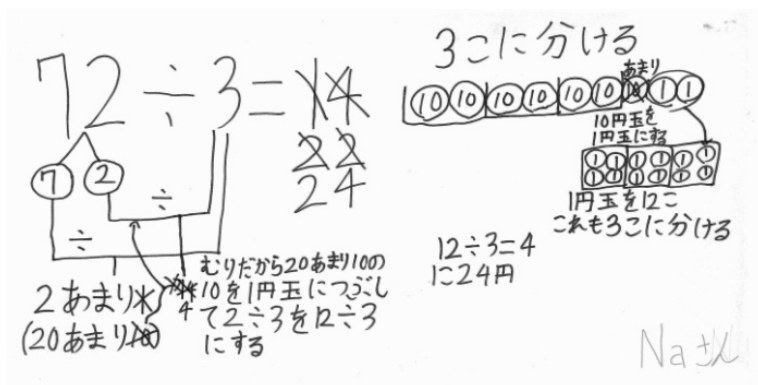 72÷3=14
22
24
7 2
÷
÷
2あまり
(20あまり10)
4
むりだから20あまり10の
10を1円玉につぶし
て2÷3を12÷3
にする
3こに分ける
あまり
10 10 10 10 10 10 10 1 1
10円玉を
1円玉にする
1 1 1 1 1 1
1 1 1 1 1 1
1円玉を12こ
これも3こに分ける
12÷3=4
に24円